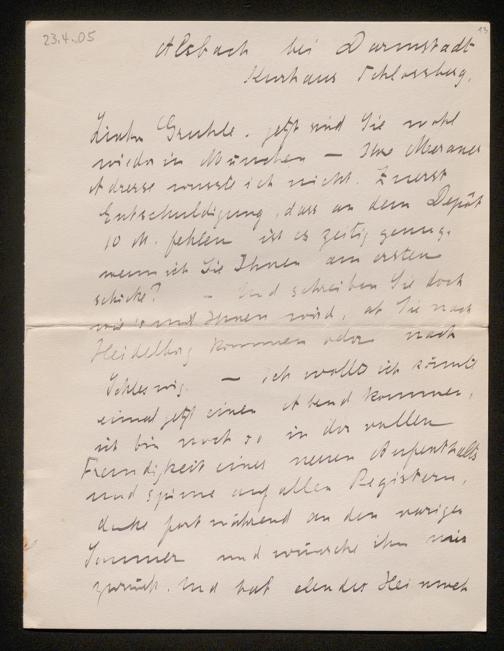 23.4.05
13
Alsbach bei Darmstadt
Kurhaus Schlossberg.
Lieber Gruhle. jetzt sind Sie wohl
wieder in München — Ihre Meraner
Adresse wusste ich nicht. Zuerst
Entschuldigung, dass an dem Depôt
10 M. fehlen ist es zeitig genug,
wenn ich Sie Ihnen am ersten
schicke? — Und schreiben Sie doch
wie's mit Ihnen wird, ob Sie nach
Heidelberg kommen oder nach
Schleswig. — ich wollte ich könnte
einmal jetzt einen Abend kommen,
ich bin noch so in der vollen
Freudigkeit eines neuen Aufenthalts
und spinne auf allen Registern,
denke fortwährend an den vorigen
Sommer und wünsche ihn mir
zurück. Und hat elendes Heimweh